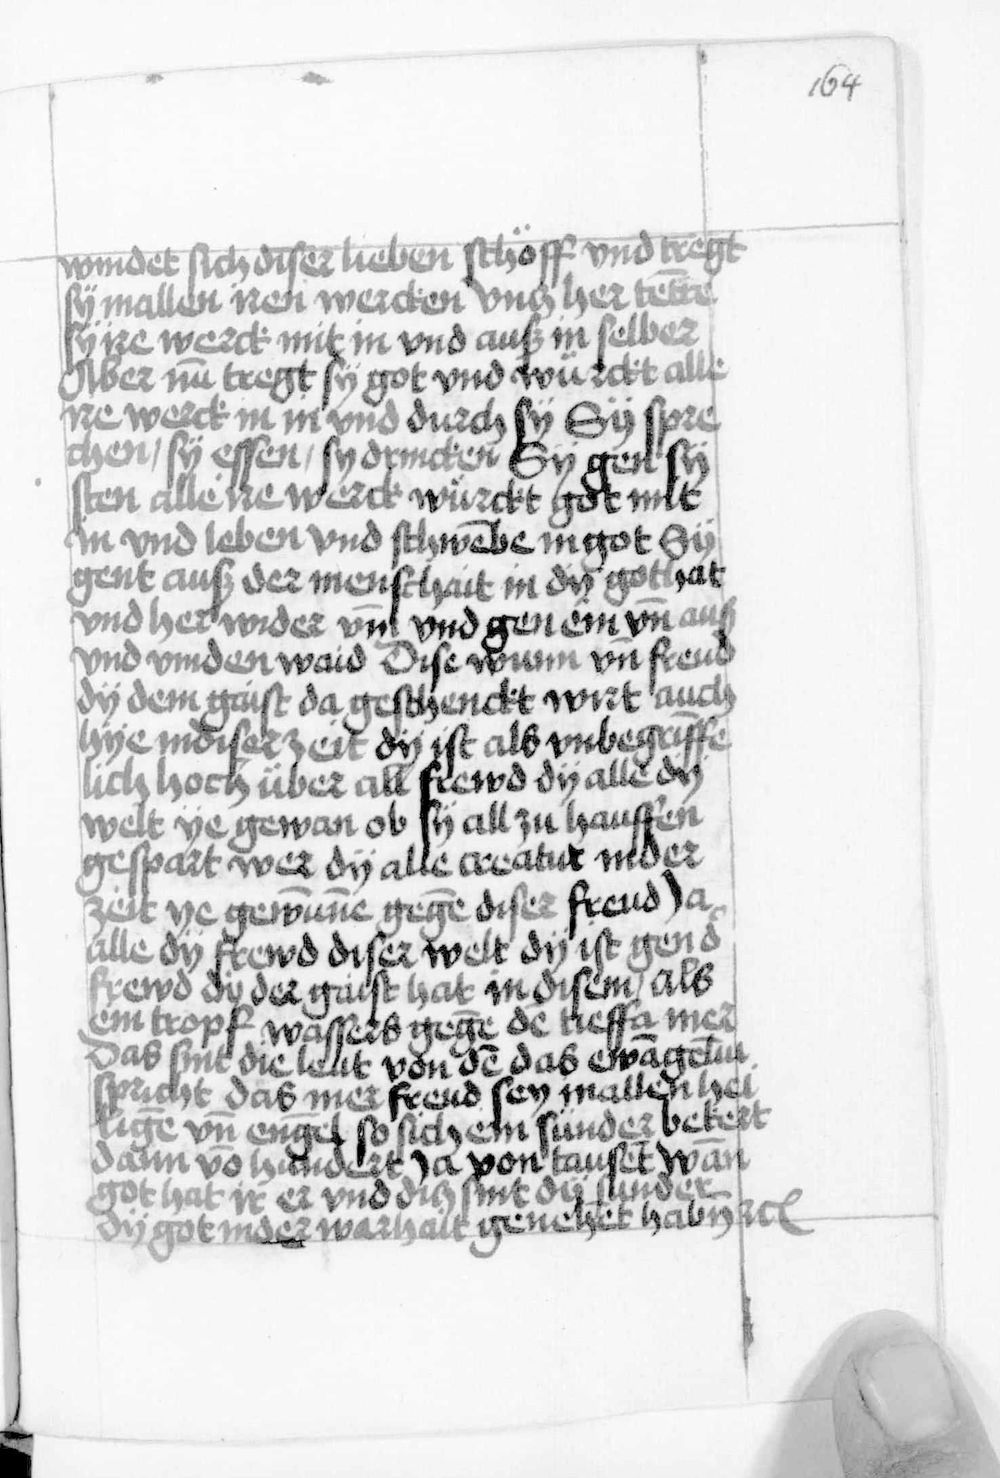 164
windet sich diser lieben schöff vnd tregt
sÿ in allen iren wercken vncz her tette
sÿ ire werck mit in vnd ausz in selber
Aber nū tregt sÿ got vnd würckt alle
ire werck in in vnd durch sÿ Sÿ spre
chen / sÿ essen / sy drincken Sÿ gen sÿ
sten alle ire werck würckt got mit
in vnd leben vnd schwēbe in got Sÿ
gent ausz der menschait in dÿ gothat
vnd her wider vm̄ vnd gen ein vn̄ ausz
vnd vinden waid Dise wunn vn̄ freud
dÿ dem gaist da geschenckt wirt auch
hÿe in diser zeit dÿ ist als vnbegriffē
lich hoch über all frewd dÿ alle dÿ
welt ÿe gewan ob sÿ all zu hauffen
gespart wer dÿ alle creatur in der
zeit ye gewūnē gegē diser freud Ja
alle dÿ frewd diser welt dÿ ist gen d
frewd dÿ der gaist hat in disem / als
ein tropf wassers gegē dē tieffa mer
Das sint die leut von dē das ewāgeliu
spricht das mer freud sey in allen hei
ligē vn̄ engel so sich ein sünder bekert
dann vō hundert Ja von tausēt wān
got hat ir er vnd disz sint dÿ sunder
dÿ got in der warhait genehet habn̄ ꝛcͨ